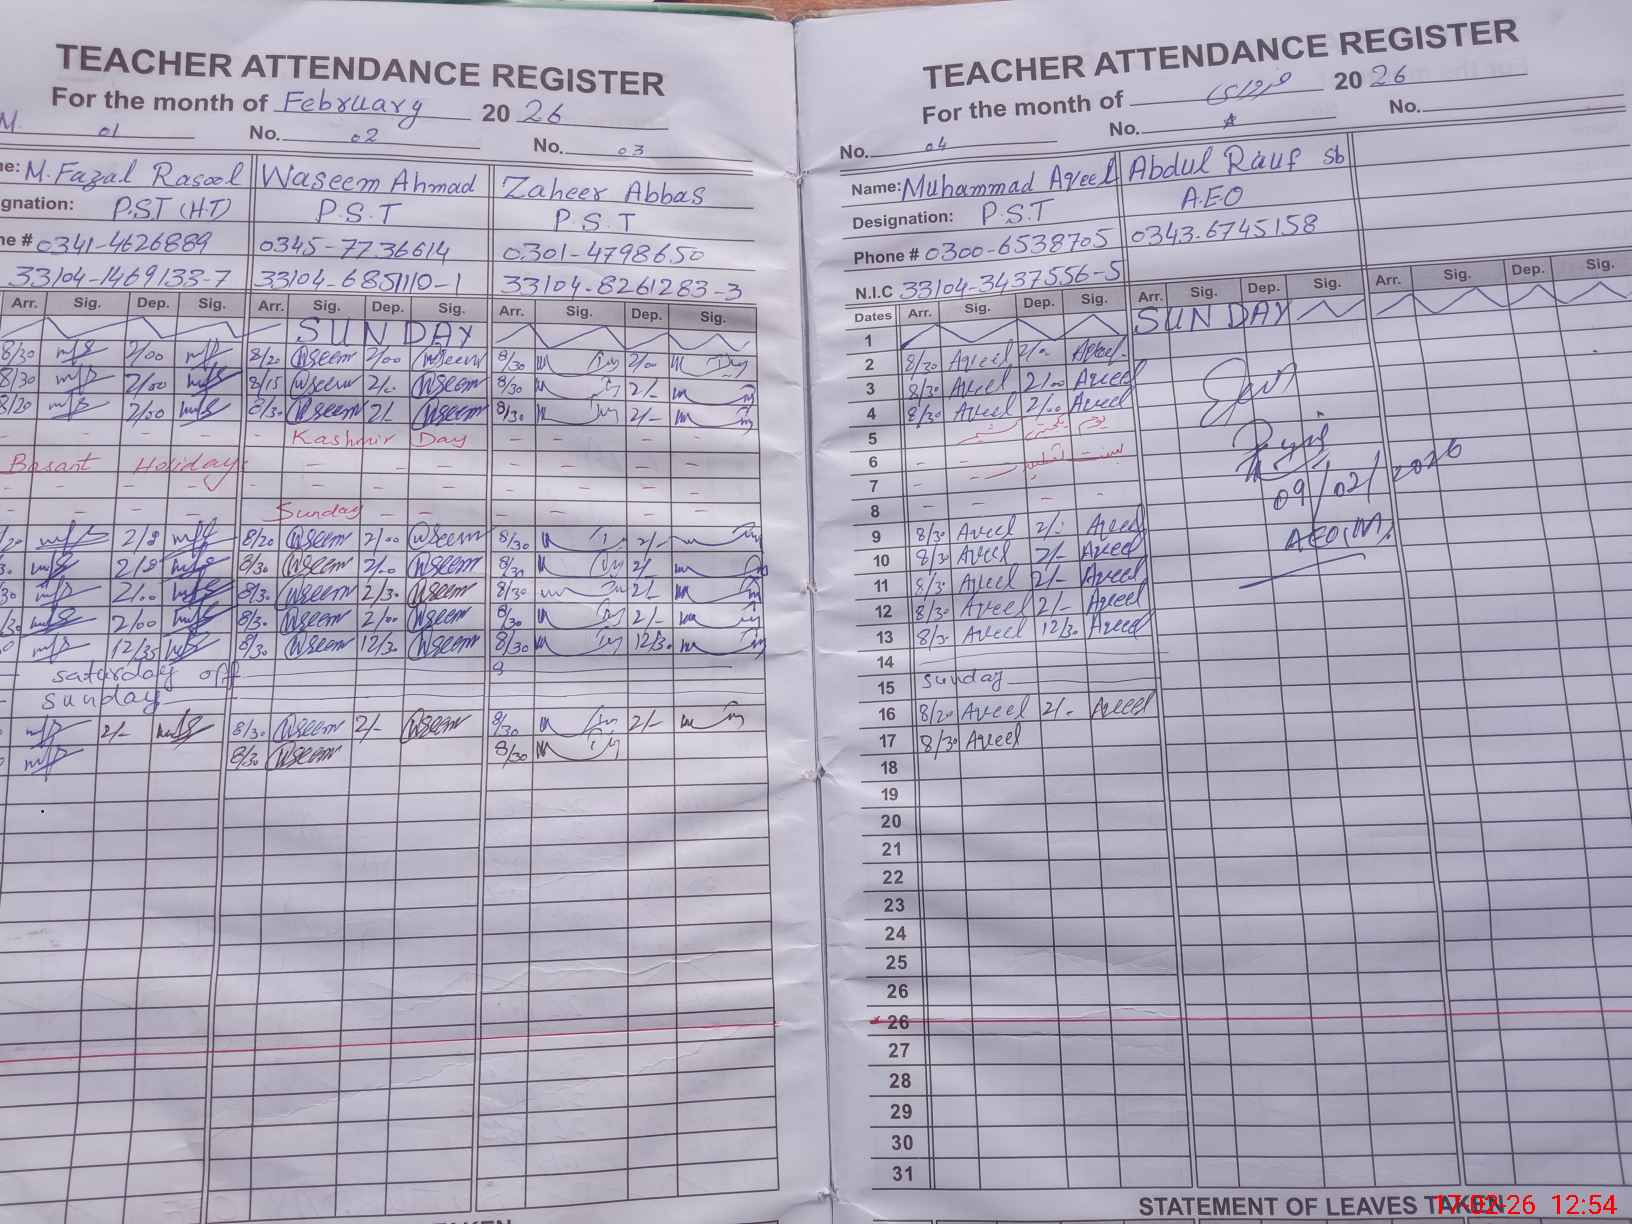 TEACHER ATTENDANCE REGISTER
For the month of February 20 26
M. 01 No. 02 No. 03
e: M. Fazal Rasool Waseem Ahmad Zaheer Abbas
gnation: P.S.T (H.T) P.S.T P.S.T
ne # 0341-4626889 0345-7736614 0301-4798650
33104-1469133-7 33104-6851110-1 33104-8261283-3
Arr. Sig. Dep. Sig. Arr. Sig. Dep. Sig. Arr. Sig. Dep. Sig.
SUNDAY
8/30 2/00 8/20 Waseem 2/00 Waseem 8/30 2/00
8/30 2/00 8/15 Waseem 2/- Waseem 8/30 2/-
8/20 2/00 8/30 Waseem 2/- Waseem 8/30 2/-
Kashmir Day
Basant Holiday
Sunday
8/20 Waseem 2/00 Waseem 8/30 2/-
8/30 Waseem 2/00 Waseem 8/30 2/-
2/00 8/30 Waseem 2/30 Waseem 8/30 2/-
2/00 8/30 Waseem 2/00 Waseem 8/30 2/-
12/35 8/30 Waseem 12/30 Waseem 8/30 12/30
saturday off
sunday
2/- 8/30 Waseem 2/- Waseem 8/30 2/-
8/30 Waseem 8/30
TEACHER ATTENDANCE REGISTER
For the month of فروری 20 26
No. 04 No. No.
Name: Muhammad Aqeel Abdul Rauf sb
Designation: P.S.T A.E.O
Phone # 0300-6538705 0343-6745158
N.I.C 33104-3437556-5
Dates Arr. Sig. Dep. Sig. Arr. Sig. Dep. Sig. Arr. Sig. Dep. Sig.
1 SUNDAY
2 8/30 Aqeel 2/- Aqeel
3 8/30 Aqeel 2/00 Aqeel
4 8/30 Aqeel 2/00 Aqeel
5 یوم
6 بسنت
7
8
9 8/30 Aqeel 2/- Aqeel 09/02/2026
10 8/30 Aqeel 2/- Aqeel
11 8/30 Aqeel 2/- Aqeel
12 8/30 Aqeel 2/- Aqeel
13 8/30 Aqeel 12/30 Aqeel
14
15 sunday
16 8/20 Aqeel 2/- Aqeel
17 8/30 Aqeel
18
19
20
21
22
23
24
25
26
26
27
28
29
30
31
STATEMENT OF LEAVES TAKEN
17-02-26 12:54